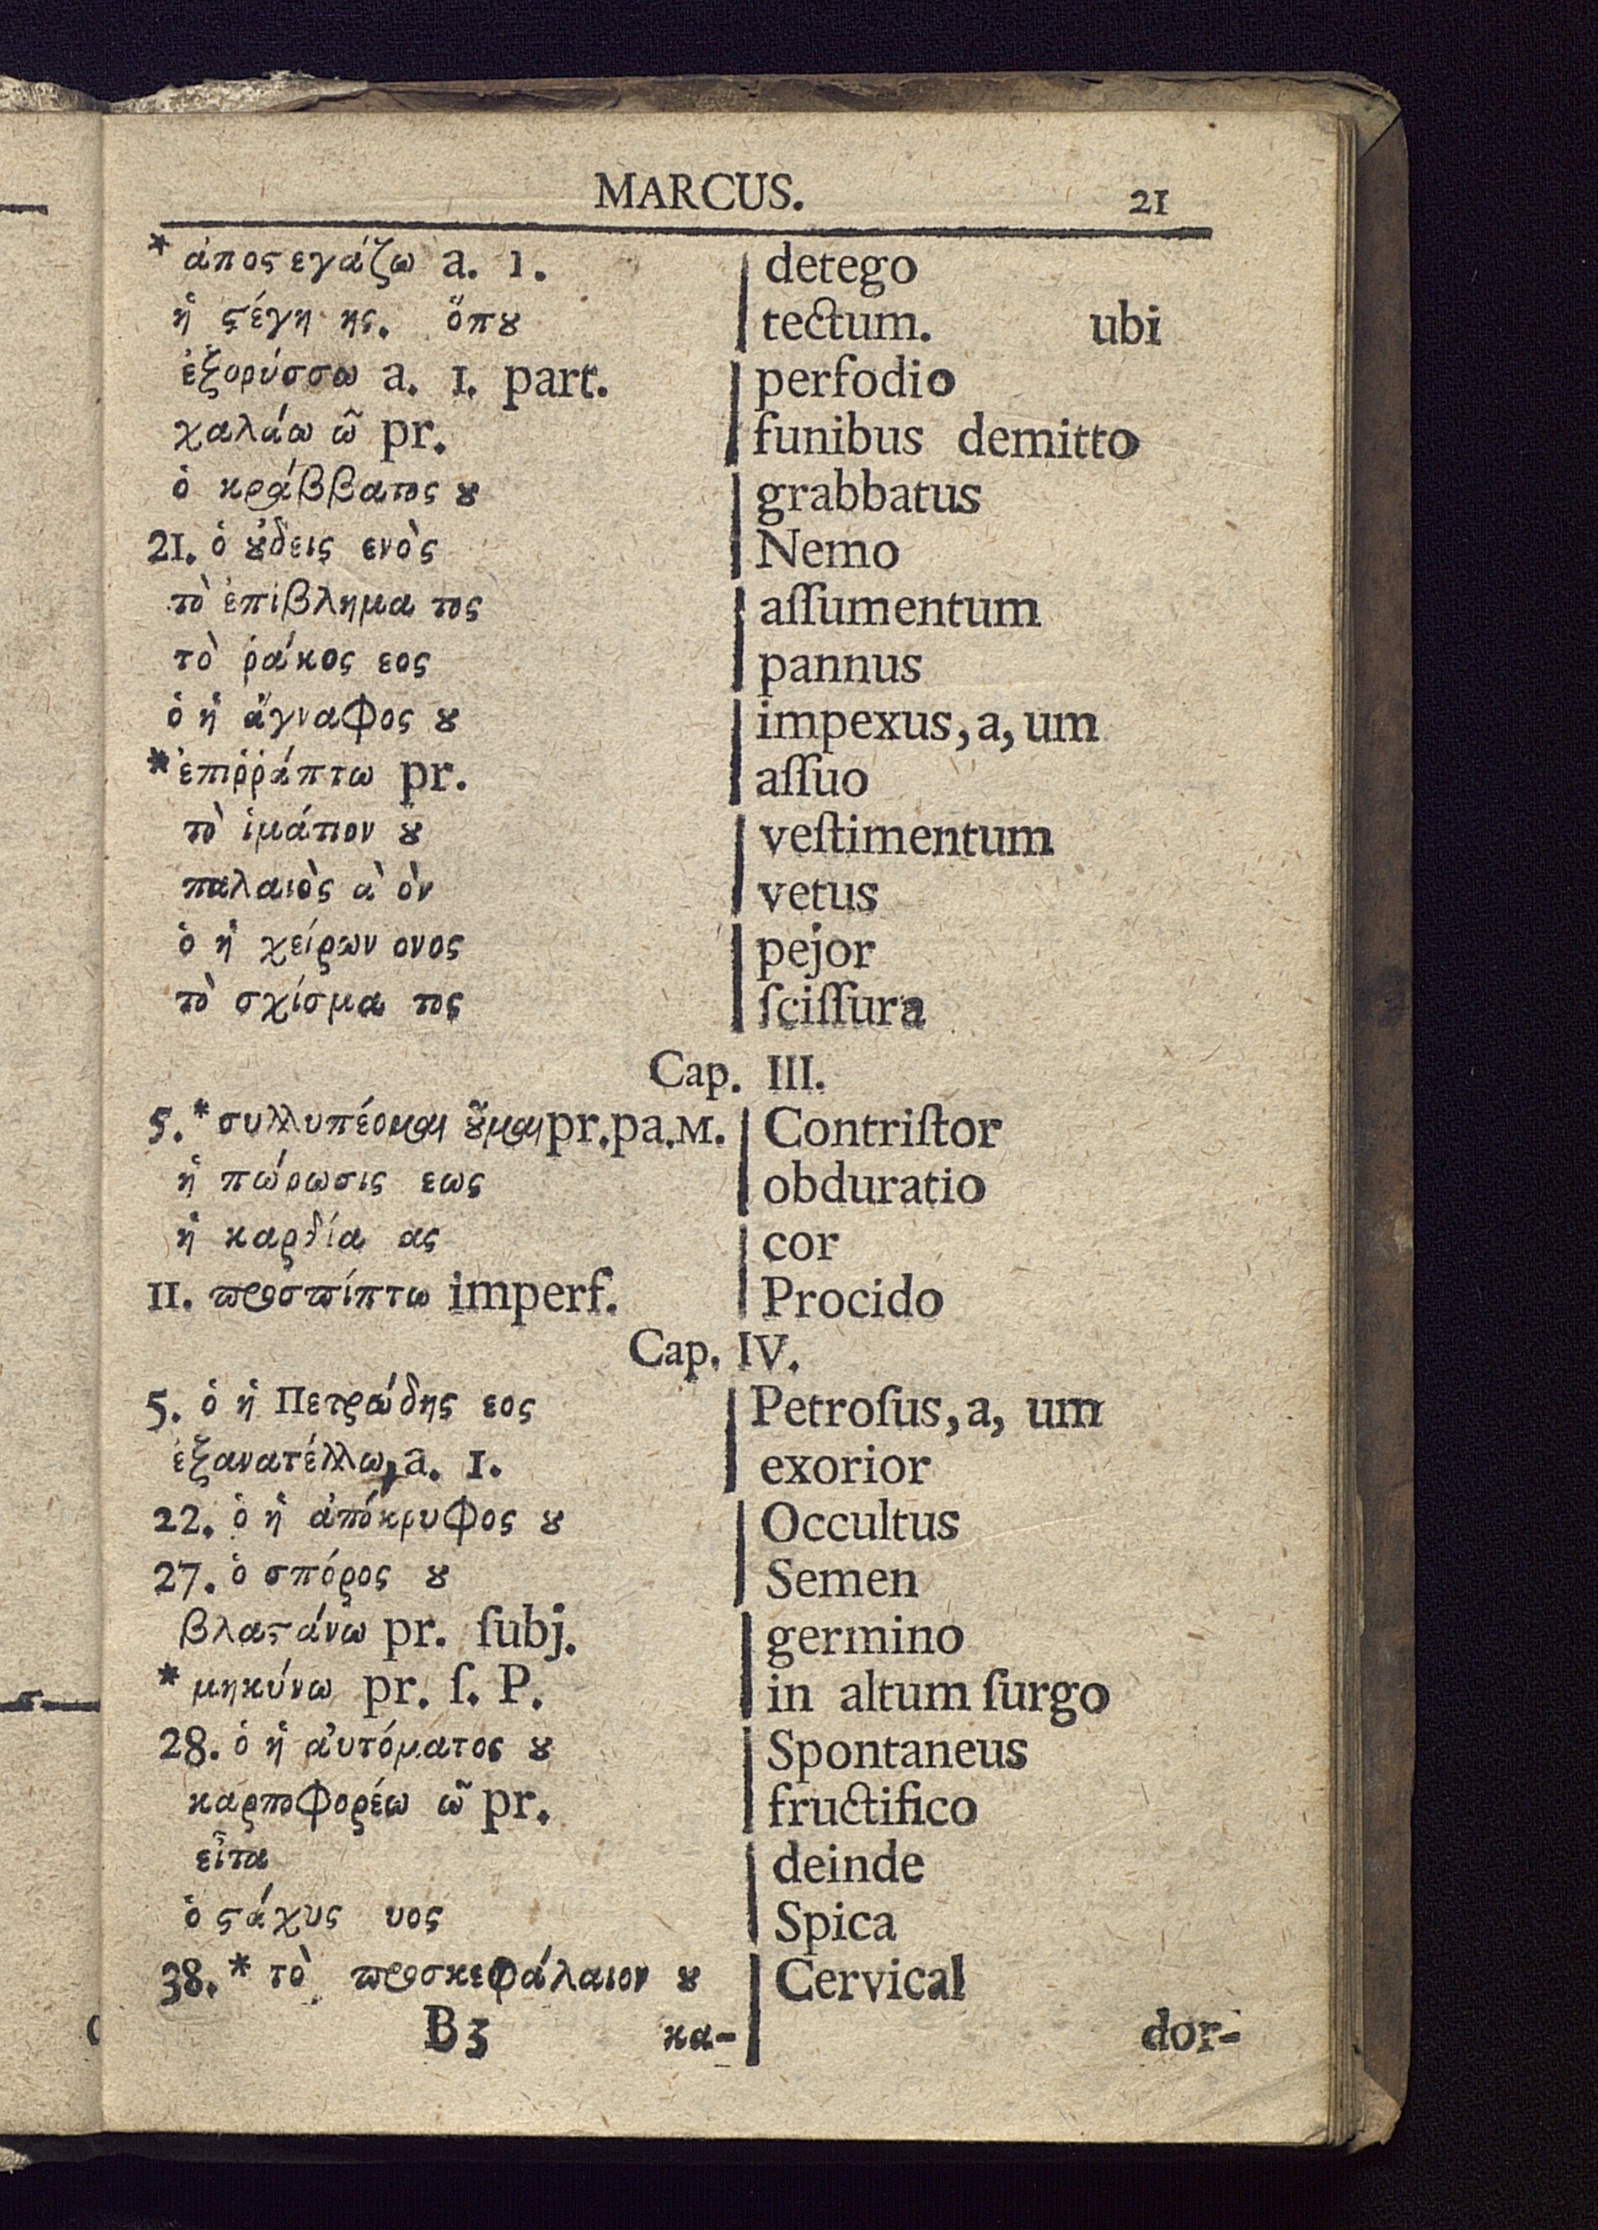 MARCUS. 21
* ἀποϛεγάζω a. 1. detego
ἡ ϛέγη ης. ὅπȣ tectum. ubi
ἐξορύσσω a. 1. part. perfodio
χαλάω ῶ pr. funibus demitto
ὁ κράββατος ȣ grabbatus
21. ὁ ȣ̓δεις ενὸς Nemo
τὸ ἐπίβλημα τος aſſumentum
τὸ ῥάκος εος pannus
ὁ ἡ ἄγναφος ȣ impexus, a, um
* ἐπιῤῥάπτω pr. aſſuo
τὸ ἱμάτιον ȣ veſtimentum
παλαιὸς ὰ ὸν vetus
ὁ ἡ χείρων ονος pejor
τὸ σχίσμα τος ſciſſura
Cap. III.
5. * συλλυπέομαι ȣ͂μαι pr. pa. M. Contriſtor
ἡ πώρωσις εως obduratio
ἡ καρδία ας cor
11. προσπίπτω imperf. Procido
Cap. IV.
5. ὁ ἡ Πετρώδης εος Petroſus, a, um
ἐξανατέλλω, a. 1. exorior
22. ὁ ἡ ἀπόκρυφος ȣ Occultus
27. ὁ σπόρος ȣ Semen
βλαϛάνω pr. ſubj. germino
* μηκύνω pr. ſ. P. in altum ſurgo
28. ὁ ἡ ἀυτόματος ȣ Spontaneus
καρποφορέω ῶ pr. fructifico
εἶτα deinde
ὁ ϛάχυς υος Spica
38. * τὸ προσκεφάλαιον ȣ Cervical
B3 κα- dor-